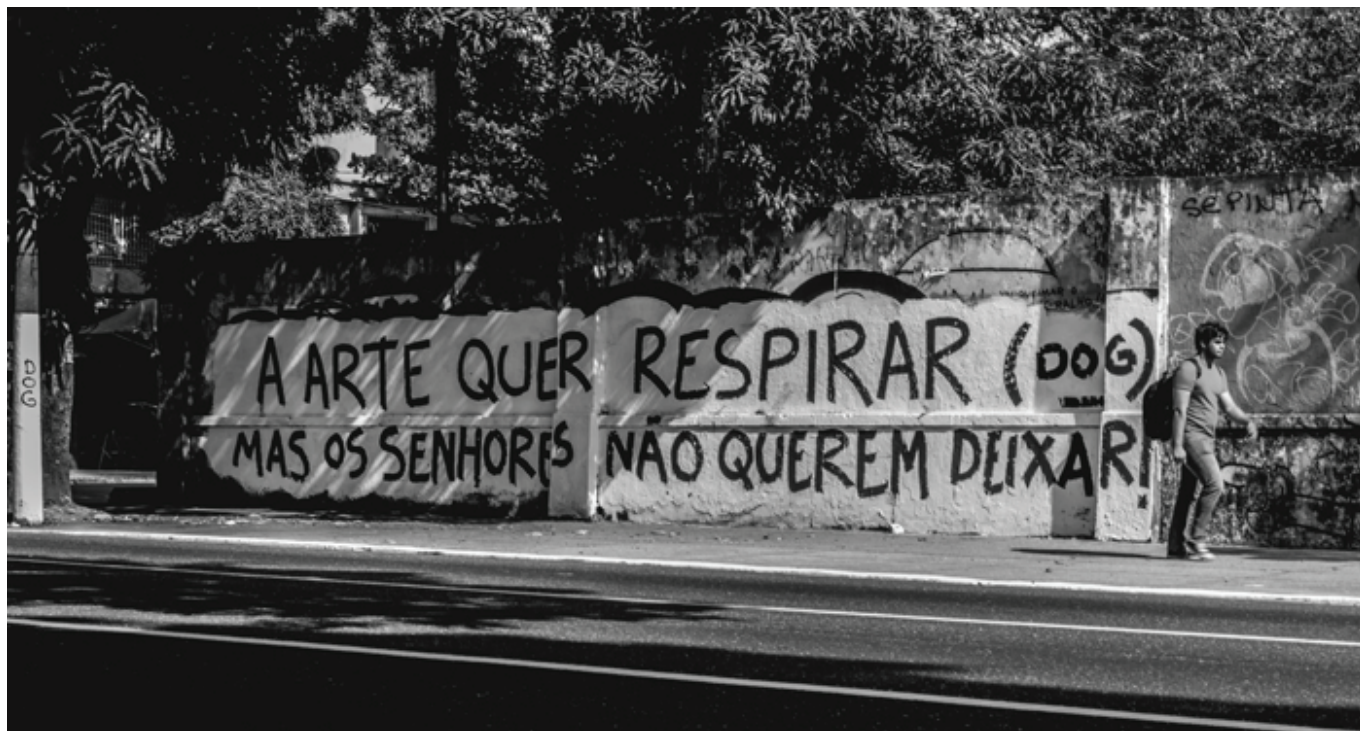 SE PINTA
A ARTE QUER RESPIRAR (DOG)
MAS OS SENHORES NÃO QUEREM DEIXAR!
DOG